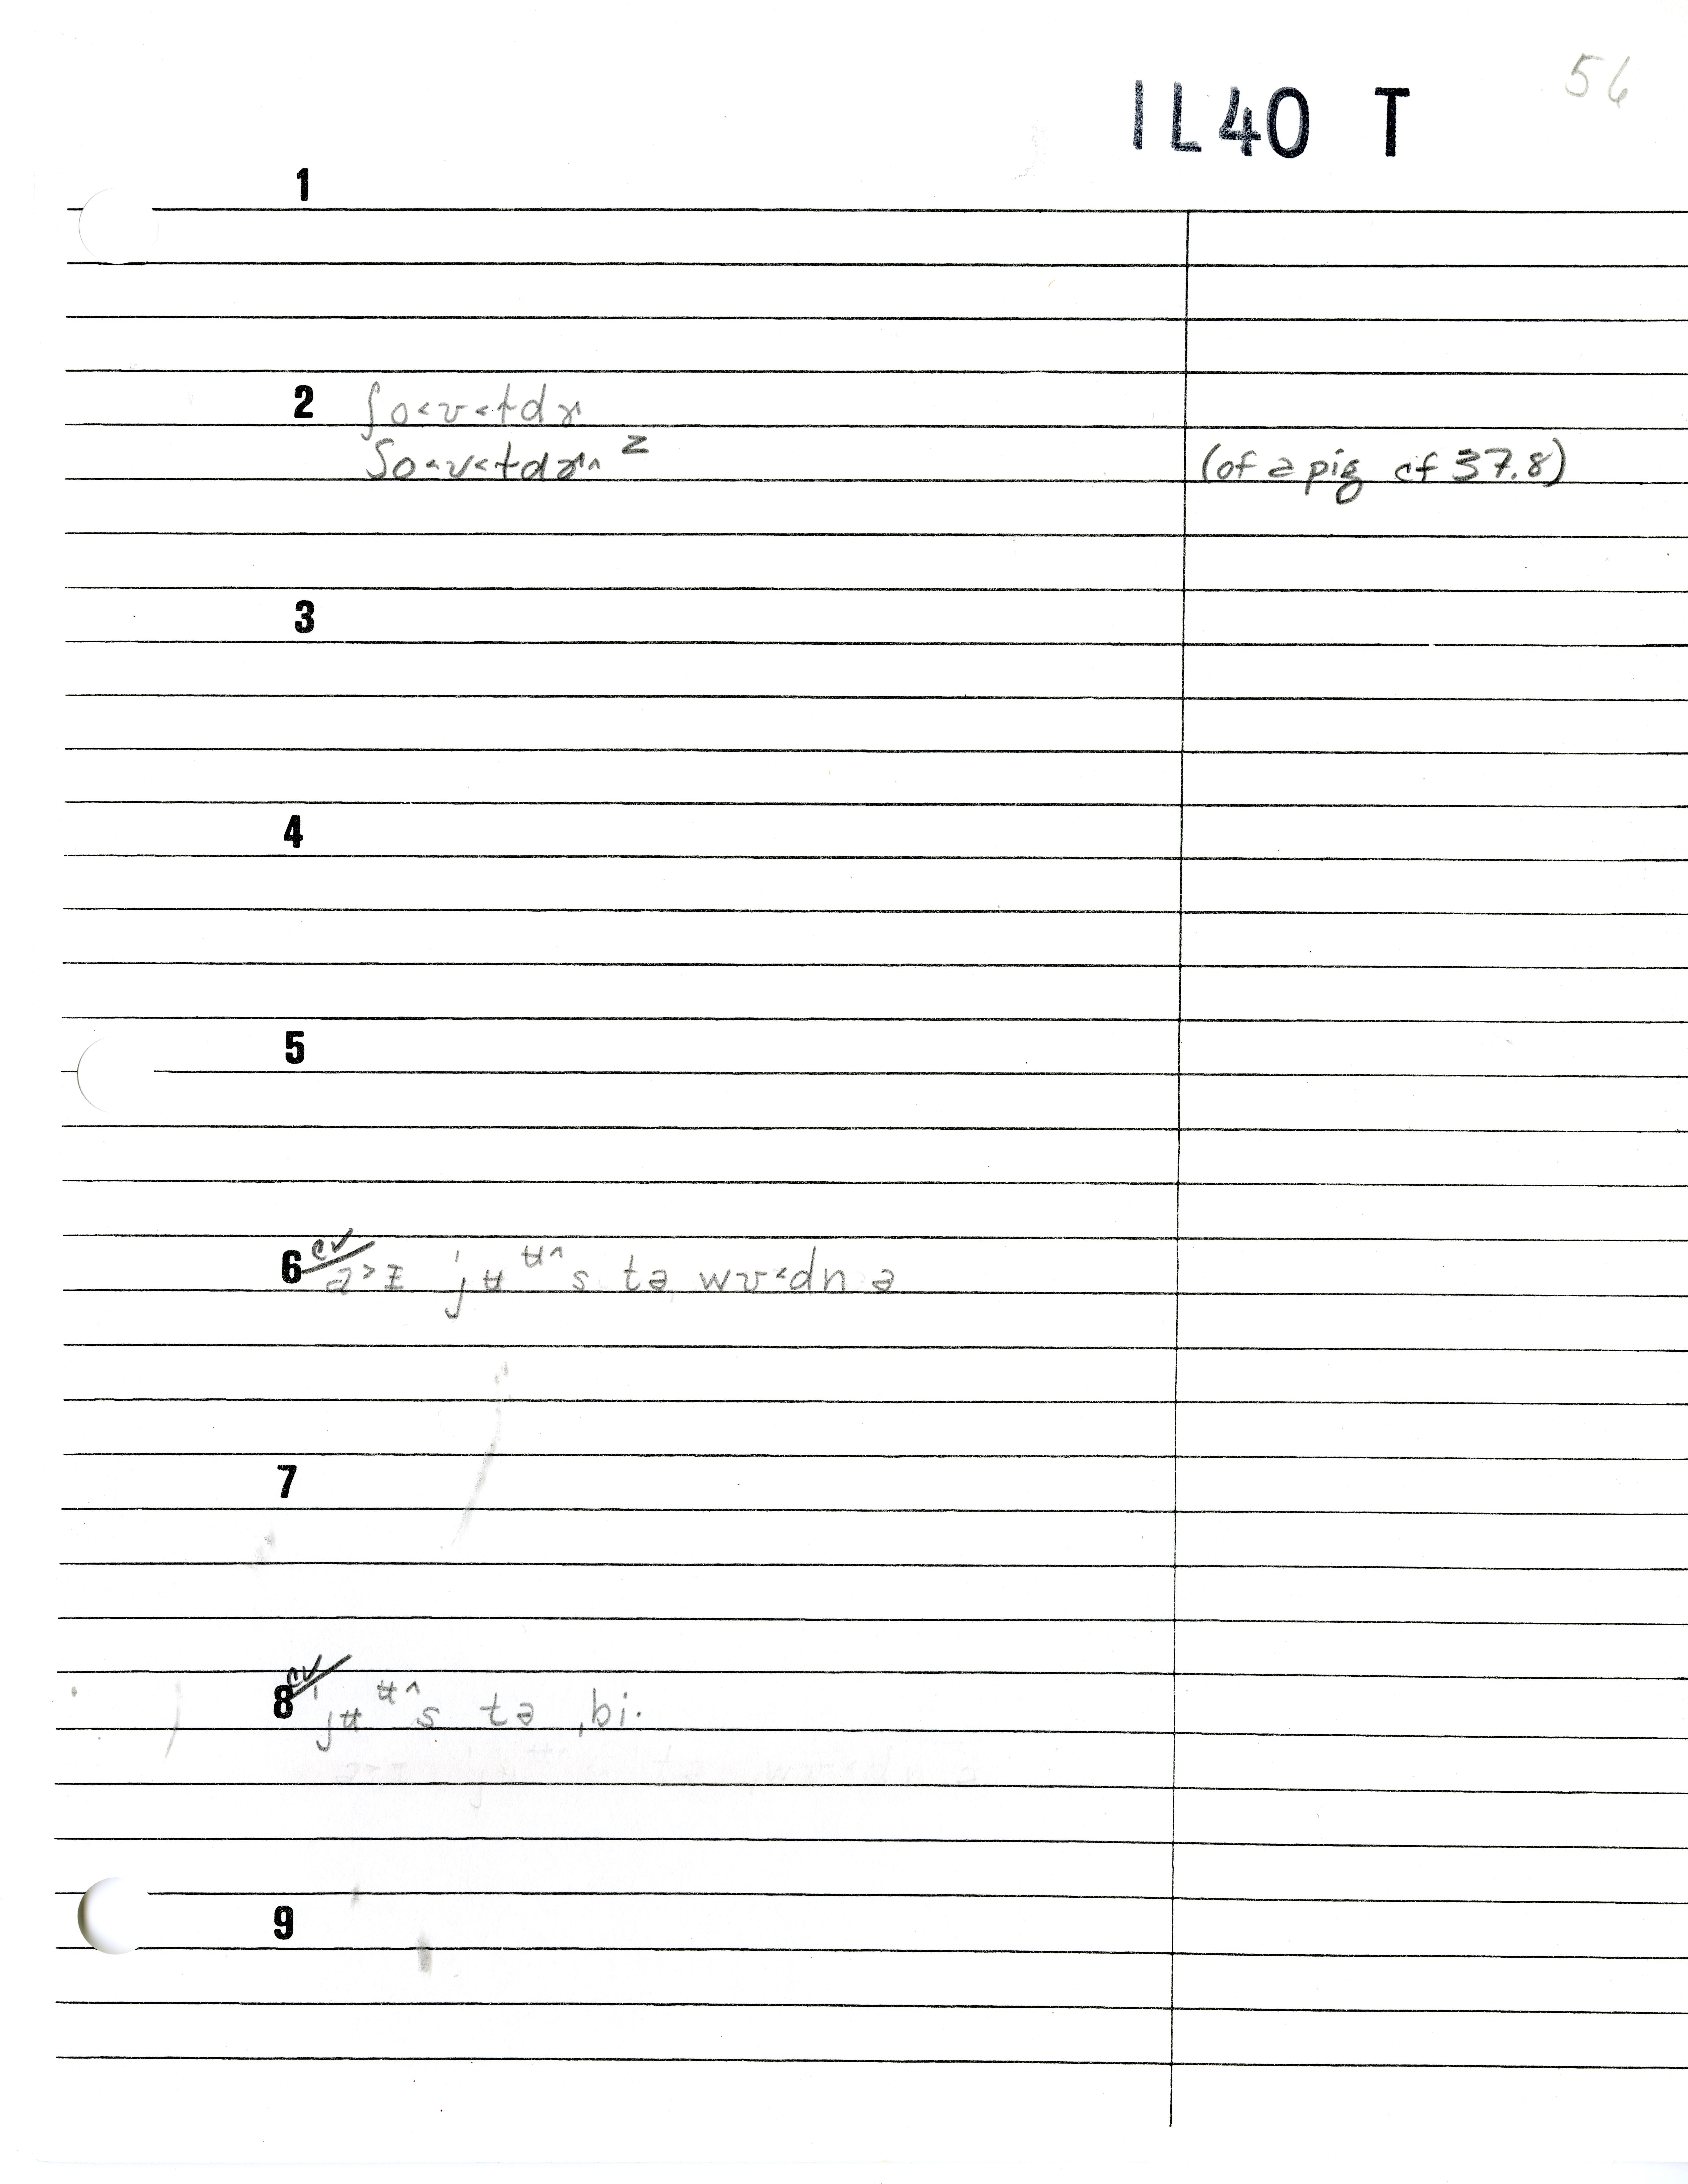 56
IL40 T
1
2 ʃo˂ʊ˂tdɚ
ʃo˂ʊ˂tdɚ^ z (of a pig cf 37.8)
3
4
5
6 cv a˃ɪ ˈjʉ ʉ^ s tə wʊ˂dn ə
7
8 cv ˈjʉ ʉ^ s tə ˌbi·
9